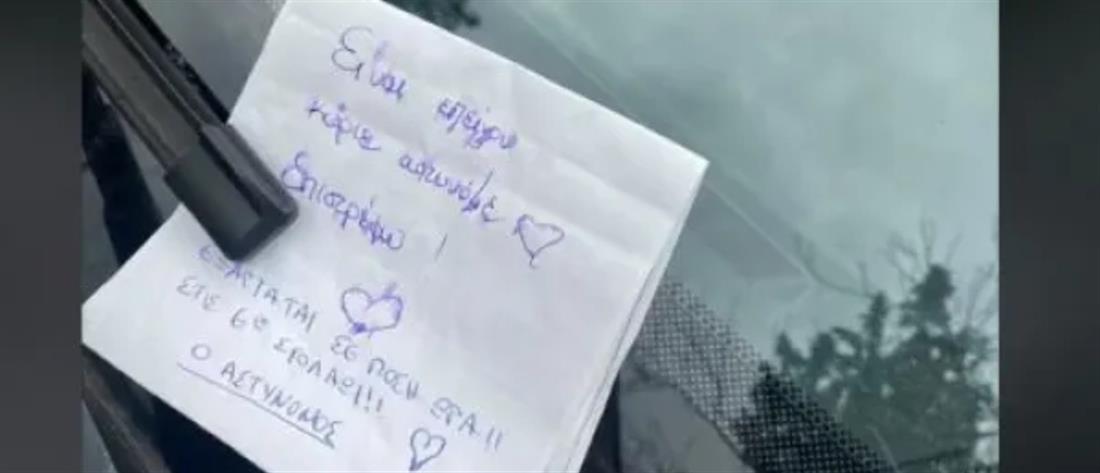 Είναι επείγον
κύριε αστυνόμε
Επιστρέφω!
ΕΞΑΡΤΑΤΑΙ ΣΕ ΠΟΣΗ ΩΡΑ!!
ΣΤΙΣ 6 ΣΧΟΛΑΩ!!!
Ο ΑΣΤΥΝΟΜΟΣ